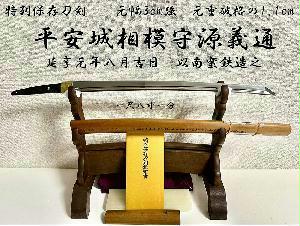 特別保存刀剣 元幅3cm強 元重破格の1.1cm
平安城相模守源義通
延享元年八月吉日 以南蛮鉄造之
一尺八寸一分